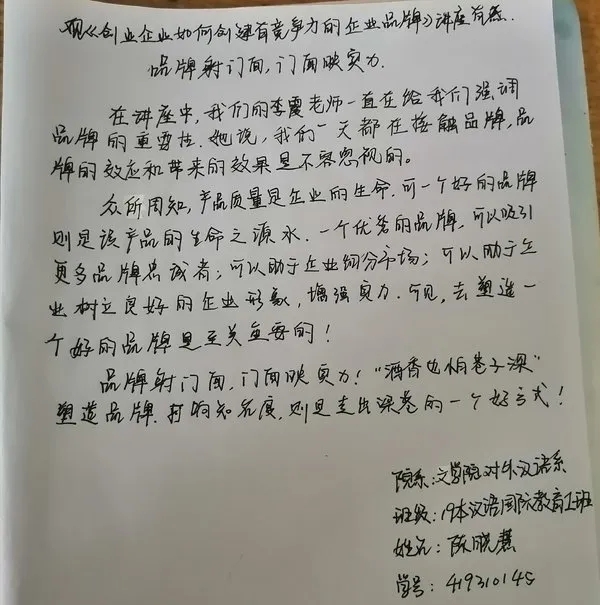 观《创业企业如何创建有竞争力的企业品牌》讲座有感.
品牌射门面,门面映实力.
在讲座中,我们的李震老师一直在给我们强调
品牌的重要性.她说,我们一天都在接触品牌,品
牌的效应和带来的效果是不容忽视的。
众所周知,产品质量是企业的生命.可一个好的品牌
则是该产品的生命之源水.一个优秀的品牌,可以吸引
更多品牌忠诚者;可以助于企业细分市场;可以助于企
业树立良好的企业形象,增强实力.可见,去塑造一
个好的品牌是至关重要的!
品牌射门面,门面映实力!"酒香也怕巷子深"
塑造品牌.打响知名度,则是走出深巷的一个好方式!
院系:文学院对外汉语系
班级:19本汉语国际教育1班
姓名:陈晓慧
学号:41931014